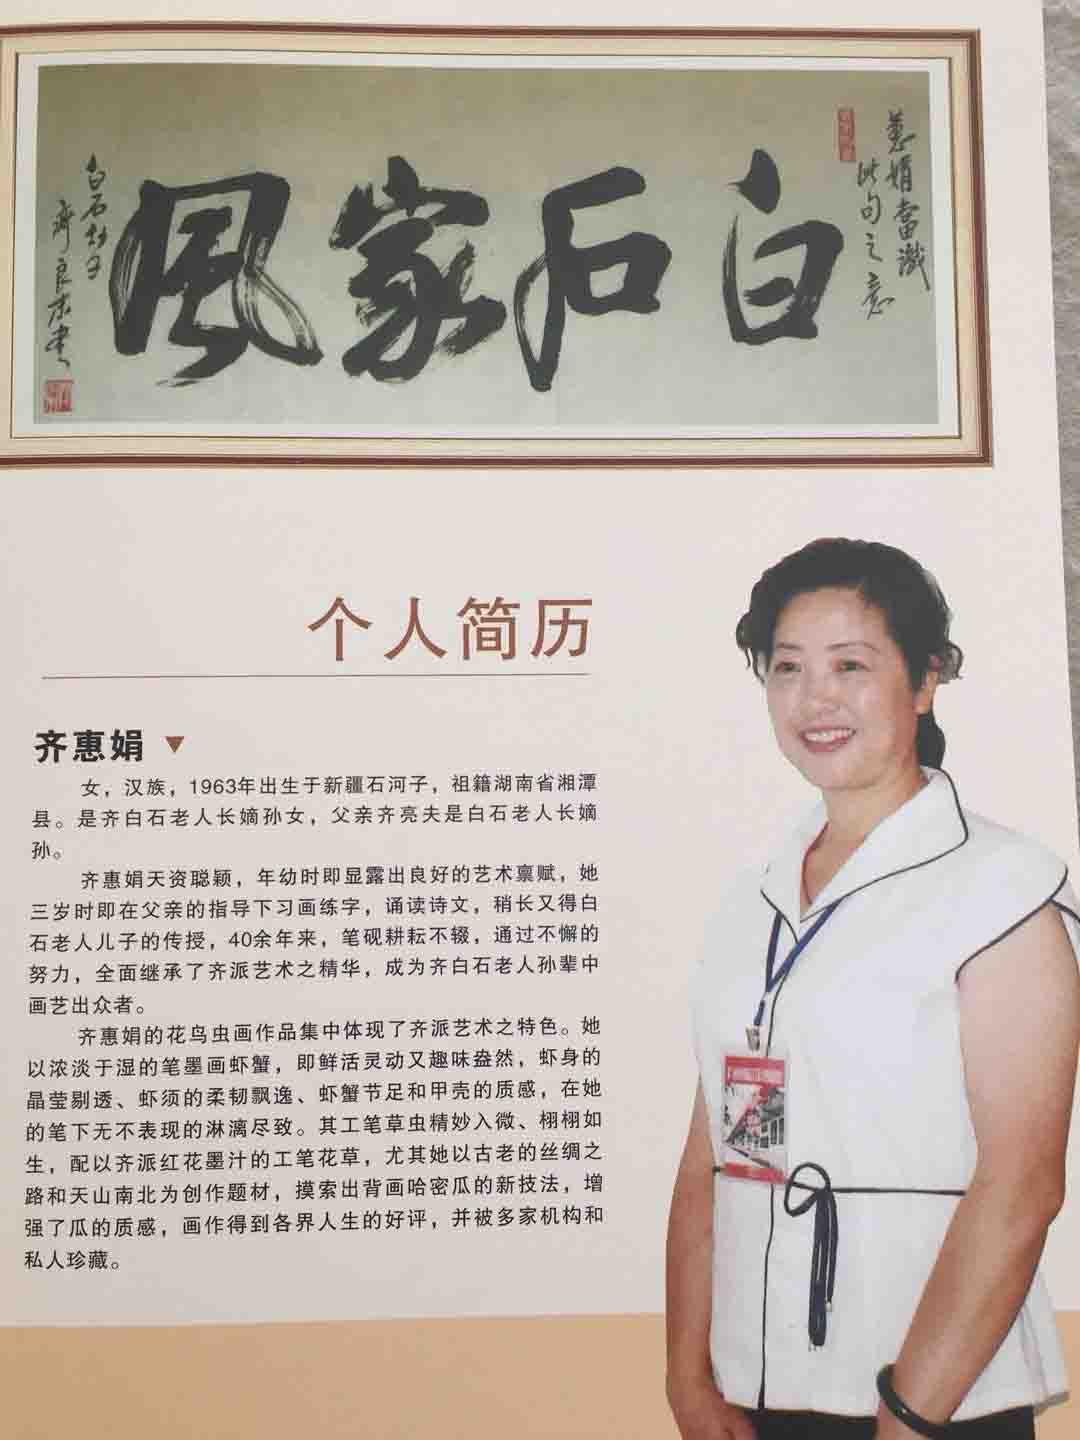 白石家风
蕙娟当识
此句之意
白石打子
齐良末书
个人简历
齐惠娟
女，汉族，1963年出生于新疆石河子，祖籍湖南省湘潭
县。是齐白石老人长嫡孙女，父亲齐亮夫是白石老人长嫡
孙。
齐惠娟天资聪颖，年幼时即显露出良好的艺术禀赋，她
三岁时即在父亲的指导下习画练字，诵读诗文，稍长又得白
石老人儿子的传授，40余年来，笔砚耕耘不辍，通过不懈的
努力，全面继承了齐派艺术之精华，成为齐白石老人孙辈中
画艺出众者。
齐惠娟的花鸟虫画作品集中体现了齐派艺术之特色。她
以浓淡于湿的笔墨画虾蟹，即鲜活灵动又趣味盎然，虾身的
晶莹剔透、虾须的柔韧飘逸、虾蟹节足和甲壳的质感，在她
的笔下无不表现的淋漓尽致。其工笔草虫精妙入微、栩栩如
生，配以齐派红花墨汁的工笔花草，尤其她以古老的丝绸之
路和天山南北为创作题材，摸索出背画哈密瓜的新技法，增
强了瓜的质感，画作得到各界人生的好评，并被多家机构和
私人珍藏。